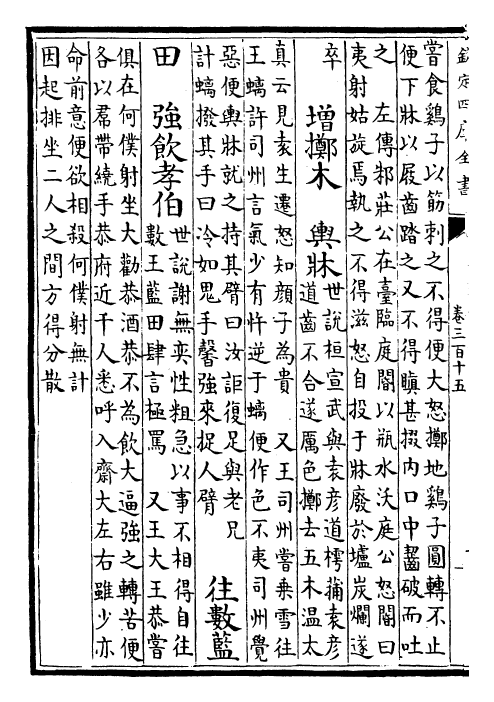 欽定四庫全書
卷三百十五
嘗食鷄子以筯刺之不得便大怒擲地鷄子圓轉不止
便下牀以屐齒踏之又不得瞋甚掇内口中齧破而吐
之　左傳邾莊公在臺臨庭閽以瓶水沃庭公怒閽曰
夷射姑旋焉執之不得滋怒自投于牀廢於壚炭爛遂
卒　增擲木　輿牀　世說桓宣武與袁彦道樗蒱袁彦
道齒不合遂厲色擲去五木温太
真云見袁生遷怒知顔子為貴　又王司州嘗乗雪往
王螭許司州言氣少有忤逆于螭便作色不夷司州覺
惡便輿牀就之持其臂曰汝詎復足與老兄
計螭撥其手曰冷如鬼手馨強來捉人臂　徃數藍
田　強飲孝伯　世說謝無奕性粗急以事不相得自往
數王藍田肆言極罵　又王大王恭嘗
俱在何僕射坐大勸恭酒恭不為飲大逼強之轉苦便
各以帬帶繞手恭府近千人悉呼入齋大左右雖少亦
命前意便欲相殺何僕射無計
因起排坐二人之間方得分散